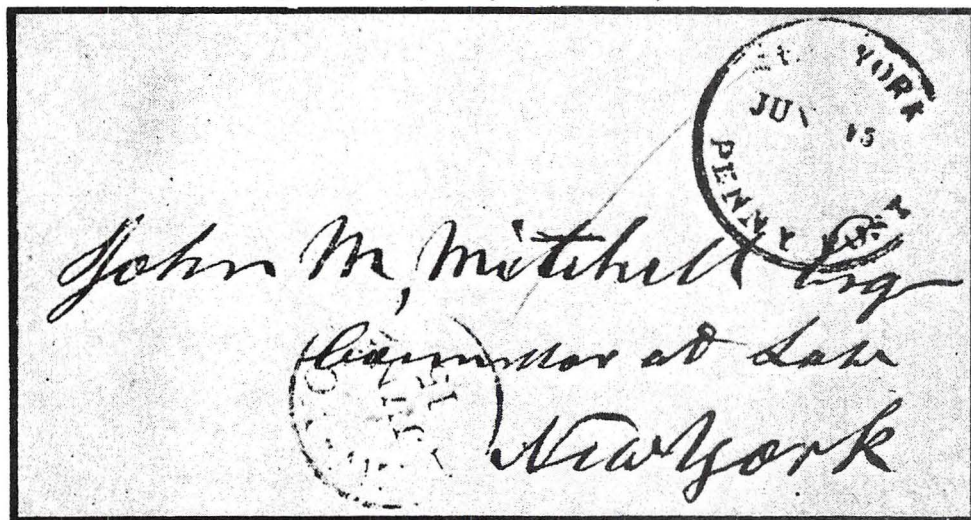 YORK
JUN 15
PENNY
John M, Mitchell Esq
Counsellor at Law
New York